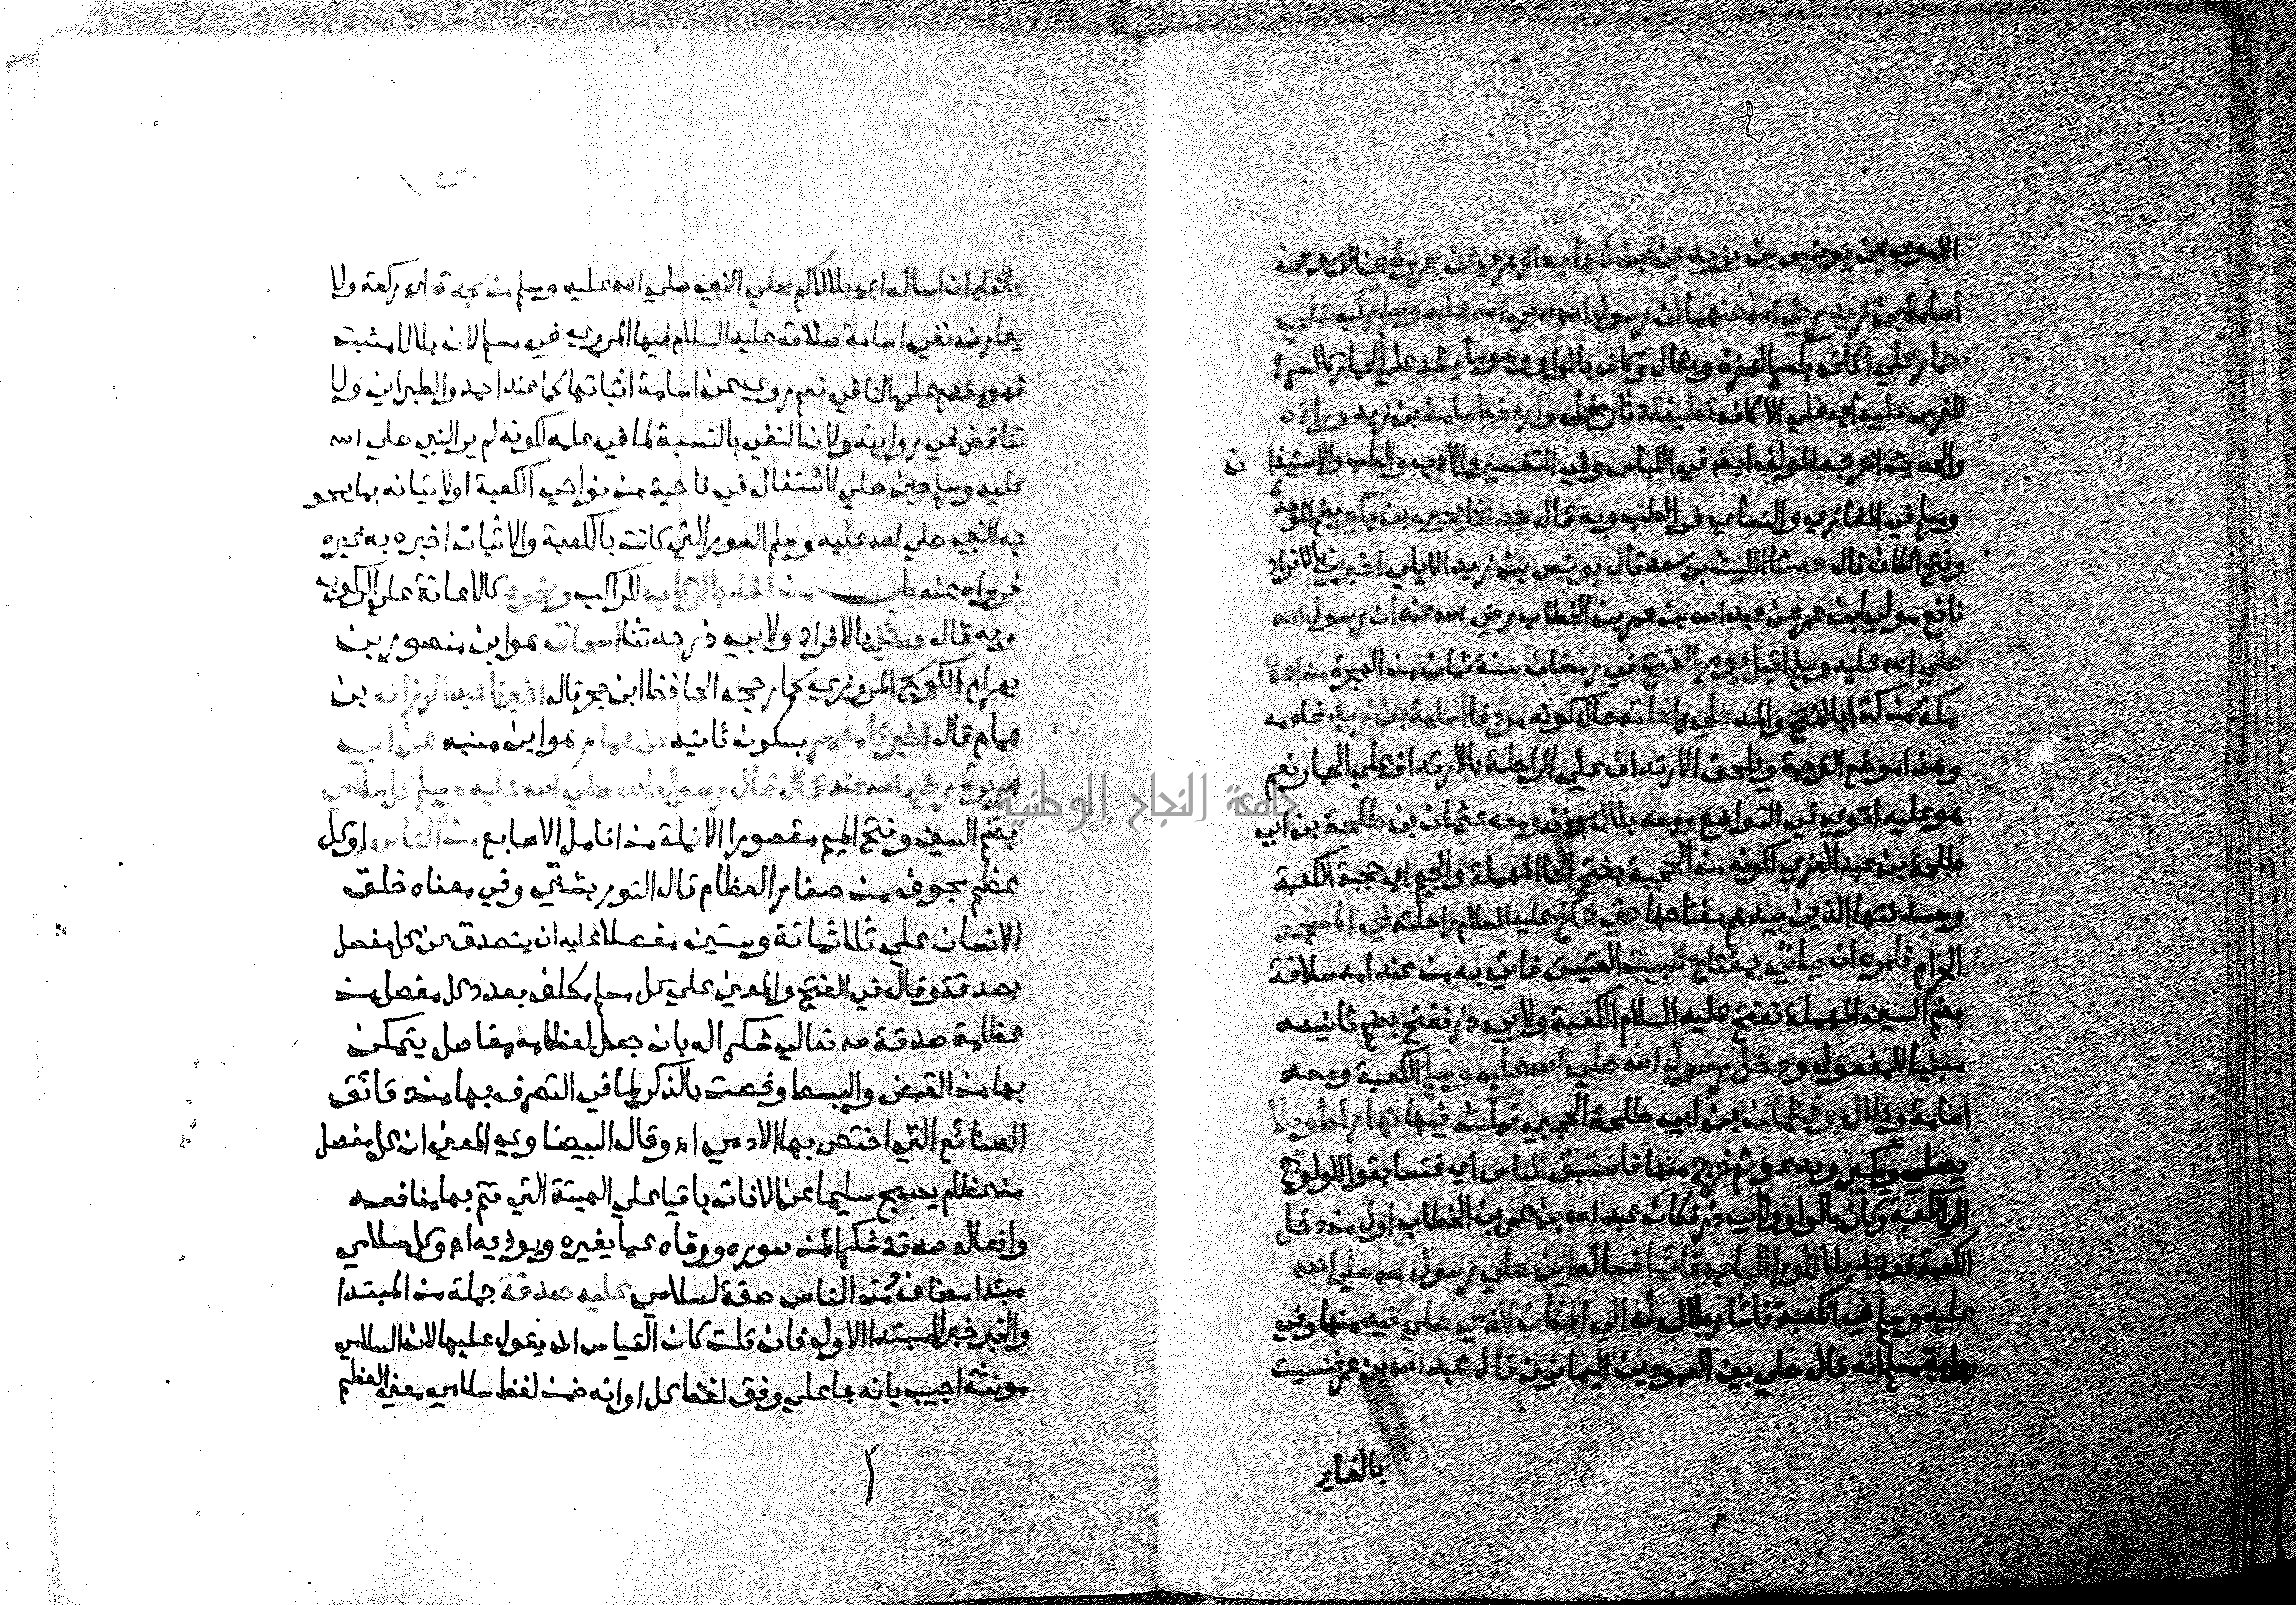 الاموي عن يونس بن يزيد عن ابن شهاب الزهري عن عروة بن الزبير عن
اسامة بن زيد رضي الله عنهما ان رسول الله صلي الله عليه وسلم ركب علي
حمار علي اكاف بكسر الهمزة ويقال وكاف بالواو وهو ما يشد علي الحمار كالسرج
للفرس عليه اي علي الاكاف قطيفة دثار مخمل واردف اسامة بن زيد وراءه
والحديث اخرجه المولف ايضا في اللباس وفي التفسير والادب والطب والاستيذان
ومسلم في المغازي والنسائي في الطب وبه قال حدثنا يحيي بن بكير بضم الموحدة
وفتح الكاف قال حدثنا الليث بن سعد قال يونس بن يزيد الايلي اخبرني بالافراد
نافع مولي ابن عمر عن عبد الله بن عمر بن الخطاب رضي الله عنه ان رسول الله
صلي الله عليه وسلم اقبل يوم الفتح في رمضان سنة ثمان من الهجرة من اعلا
مكة من كدا بالفتح والمد علي راحلته حال كونه مردفا اسامة بن زيد خادمه
وهذا موضع الترجمة ويلحق الارتداف علي الراحلة بالارتداف علي الحمار نعم
هو عليه اقوي في التواضع ومعه بلال مؤذنه ومعه عثمان بن طلحة بن ابي
طلحة بن عبد العزي لكونه من الحجبة بفتح الحا المهملة والجيم اي حجبة الكعبة
وسدنتها الذين بيدهم مفتاحها حتي اناخ عليه السلام راحلته في المسجد
الحرام فامره ان ياتي بمفتاح البيت العتيق فاتي به من عند امه سلافة
بضم السين المهملة ففتح عليه السلام الكعبة ولابي ذر ففتح بضم ثانيه
مبنيا للمفعول ودخل رسول الله صلي الله عليه وسلم الكعبة ومعه
اسامة وبلال وعثمان بن ابي طلحة الحجبي فمكث فيها نهارا طويلا
يصلي ويكبر ويدعو ثم خرج منها فاستبق الناس اي فتسابقوا للولوج
الي الكعبة وكان بالواو ولابي ذر فكان عبد الله بن عمر بن الخطاب اول من دخل
الكعبة فوجد بلالا ورا الباب قائما فساله اين صلي رسول الله صلي الله
عليه وسلم في الكعبة فاشار بلال له الي المكان الذي صلي فيه منها وفي
رواية مسلم انه قال صلي بين العمودين اليمانيين قال عبد الله بن عمر فنسيت
بالفاء
بالفاء ان اساله اي بلالا كم صلي النبي صلي الله عليه وسلم من سجدة اي ركعة ولا
يعارضه نفي اسامة صلاته عليه السلام فيها المروي في مسلم لان بلالا مثبت
فهو مقدم علي النافي نعم روي عن اسامة اثباتها كما عند احمد والطبراني ولا
تناقض في روايته ولان النفي بالنسبة لما في علمه لكونه لم ير النبي صلي الله
عليه وسلم حين صلي لاشتغاله في ناحية من نواحي الكعبة او لاتيانه بما يمحو
به النبي صلي الله عليه وسلم الصور التي كانت بالكعبة والاثبات اخبره به غيره
فرواه عنه باب من اخذ بالركاب للراكب ونحوه كالاعانة علي الركوب
وبه قال حدثني بالافراد ولابي ذر حدثنا اسحاق هو ابن منصور بن
بهرام الكوسج المروزي كما رجحه الحافظ ابن حجر قال اخبرنا عبد الرزاق بن
همام قال اخبرنا معمر بسكون ثانيه عن همام هو ابن منبه عن ابي
هريرة رضي الله عنه قال قال رسول الله صلي الله عليه وسلم كل سلامي
بضم السين وفتح الميم مقصورا الانملة من انامل الاصابع من الناس او كل
عظم مجوف من صغار العظام قال التوربشتي وفي معناه خلق
الانسان علي ثلاثمائة وستين مفصلا عليه ان يتصدق عن كل مفصل
بصدقة وقال في الفتح والمعني علي كل مسلم مكلف بعدد كل مفصل من
عظامه صدقة لله تعالي شكرا له بان جعل لعظامه مفاصل يتمكن
بها من القبض والبسط وخصت بالذكر لما في التصرف بها من دقائق
الصنائع التي اختص بها الادمي اه وقال البيضاوي المعني ان كل مفصل
من عظام يصبح سليما عن الافات باقيا علي الهيئة التي تتم بها منافعه
وافعاله صدقة شكرا لمن صوره ووقاه عما يغيره ويوذيه اه وكل سلامي
مبتدا مضاف ومن الناس صفة لسلامي عليه صدقة جملة من المبتدا
والخبر خبر للمبتدا الاول فان قلت كان القياس ان يقول عليها لان السلامي
مونثة اجيب بانه جا علي وفق لفظ كل او انه ضمن لفظ سلامي معني العظم
جامعة النجاح الوطنية